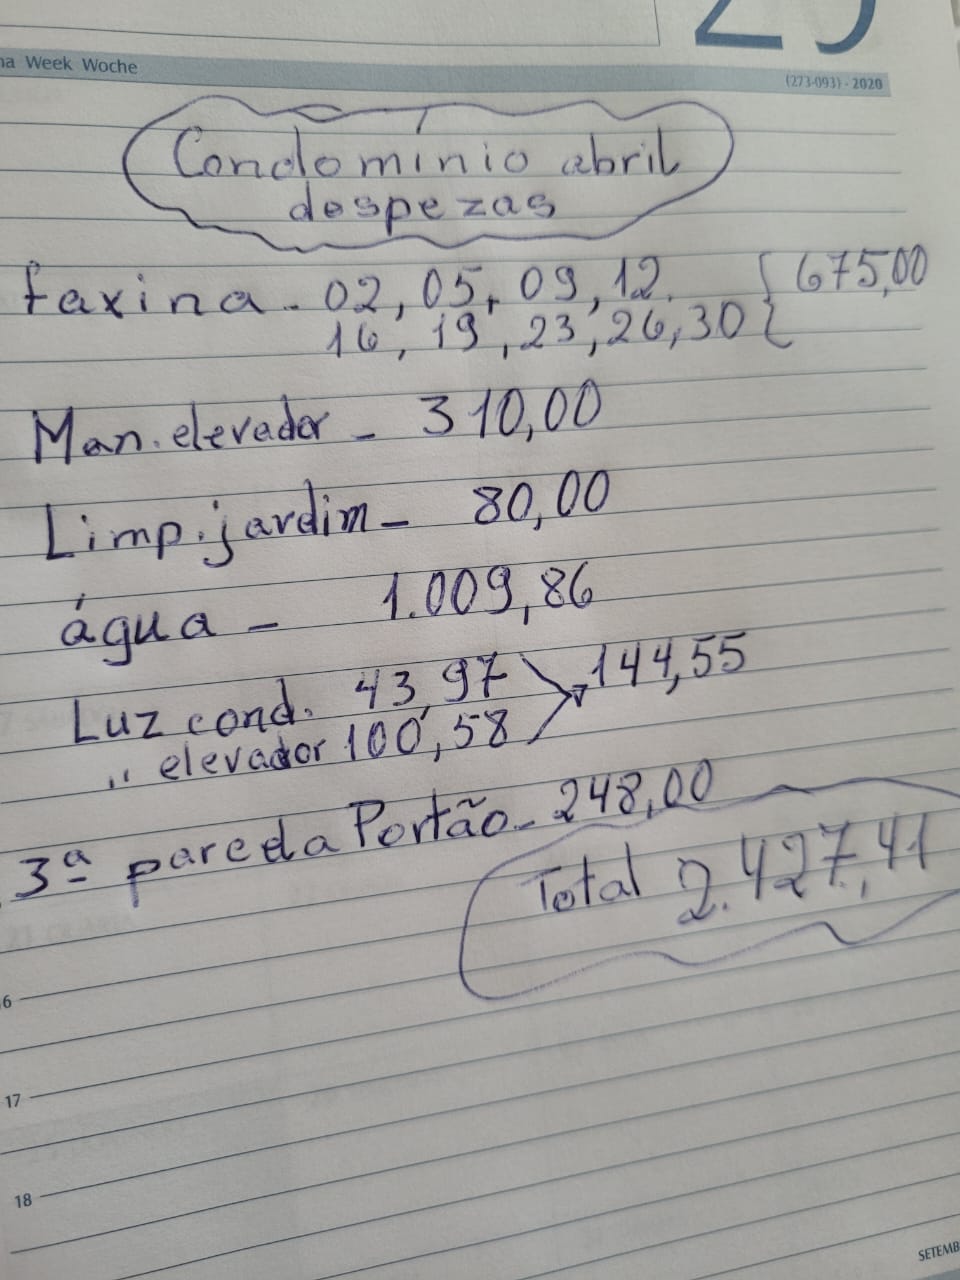 na Week Woche
(273-093) - 2020
Condomínio abril
despezas
faxina - 02, 05, 09, 12. { 675,00
16, 19, 23, 26, 30
Man. elevador - 310,00
Limp. jardim - 80,00
água - 1.009,86
Luz cond. 43,97 > 144,55
" elevador 100,58
3ª parcela Portão - 248,00
Total 2.427,41
6
17
18
SETEMB